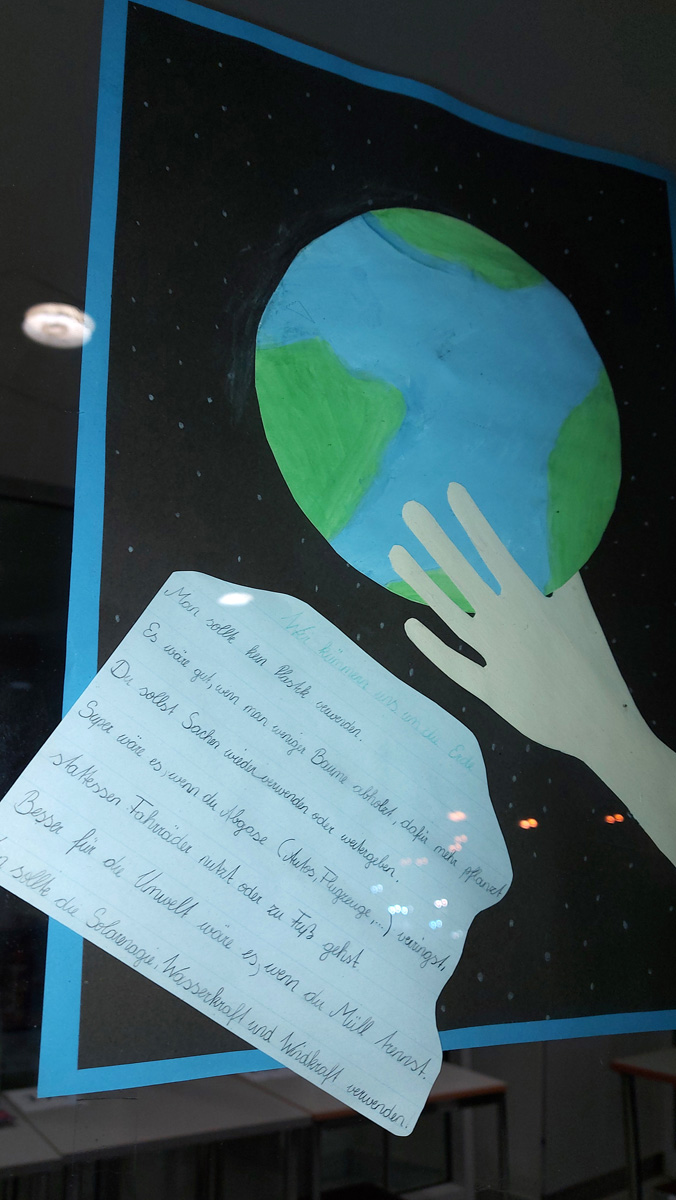 Wir kümmern uns um die Erde
Man sollte kein Plastik verwenden.
Es wäre gut, wenn man weniger Bäume abholzt, dafür mehr pflanzt
Du sollst Sachen wieder verwenden oder weitergeben.
Super wäre es, wenn du Abgase (Autos, Flugzeuge,...) veringst,
stattessen Fahrräder nutzt oder zu Fuß gehst.
Besser für die Umwelt wäre es, wenn du Müll trennst.
sollte die Solarenagie, Wasserkraft und Windkraft verwenden.